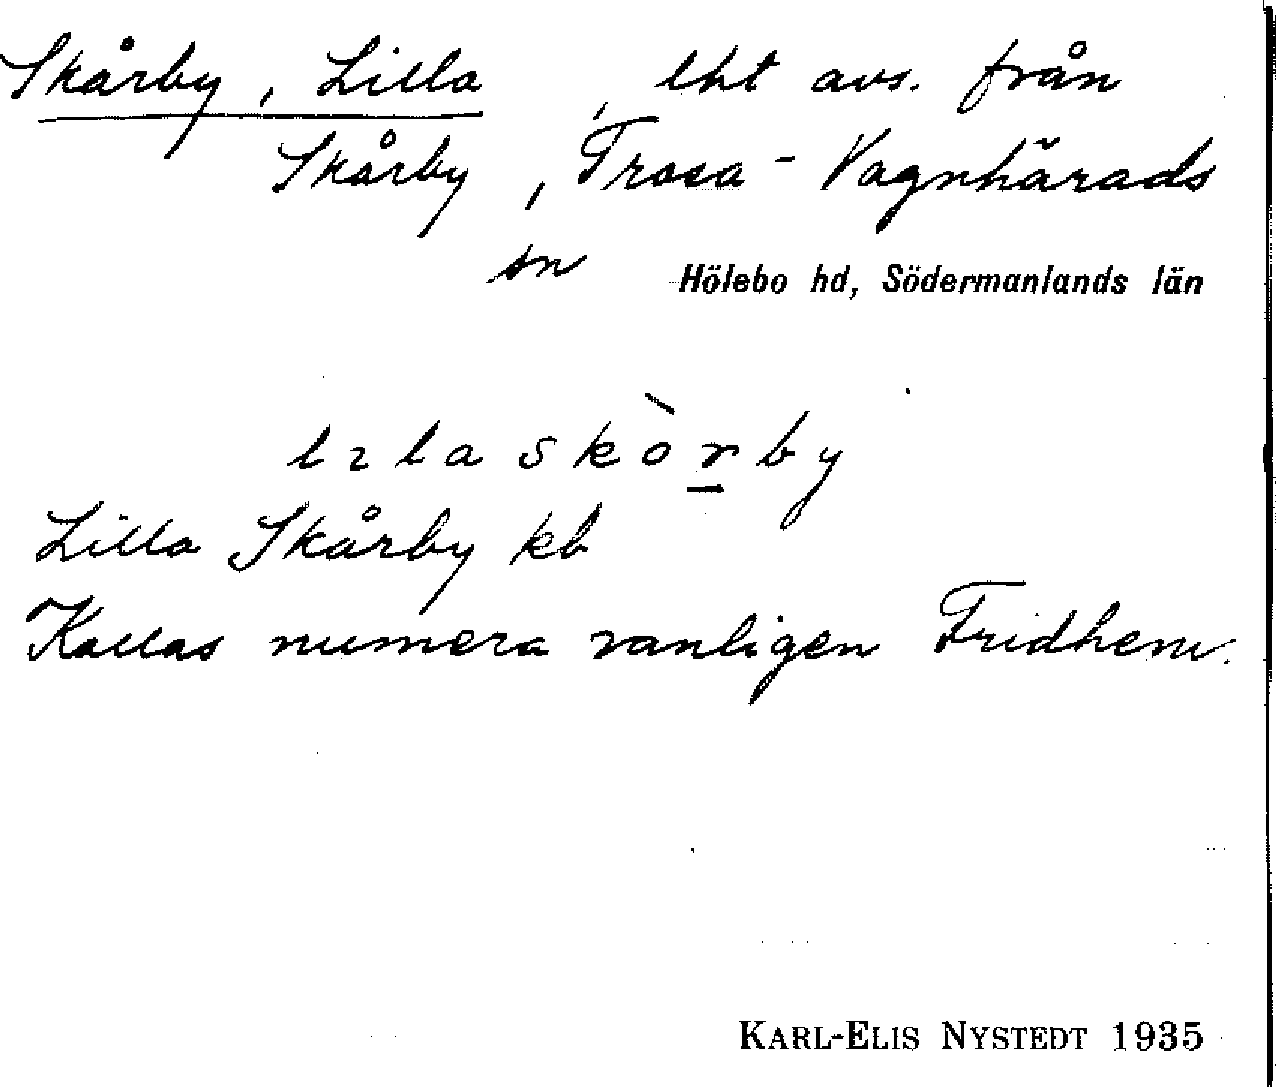 Skårby, Lilla, lht avs. från
Skårby, Trosa-Vagnhärads
sn Hölebo hd, Södermanlands län
lɩla skòrby
Lilla Skårby kb
Kallas numera vanligen Fridhem.
KARL-ELIS NYSTEDT 1935